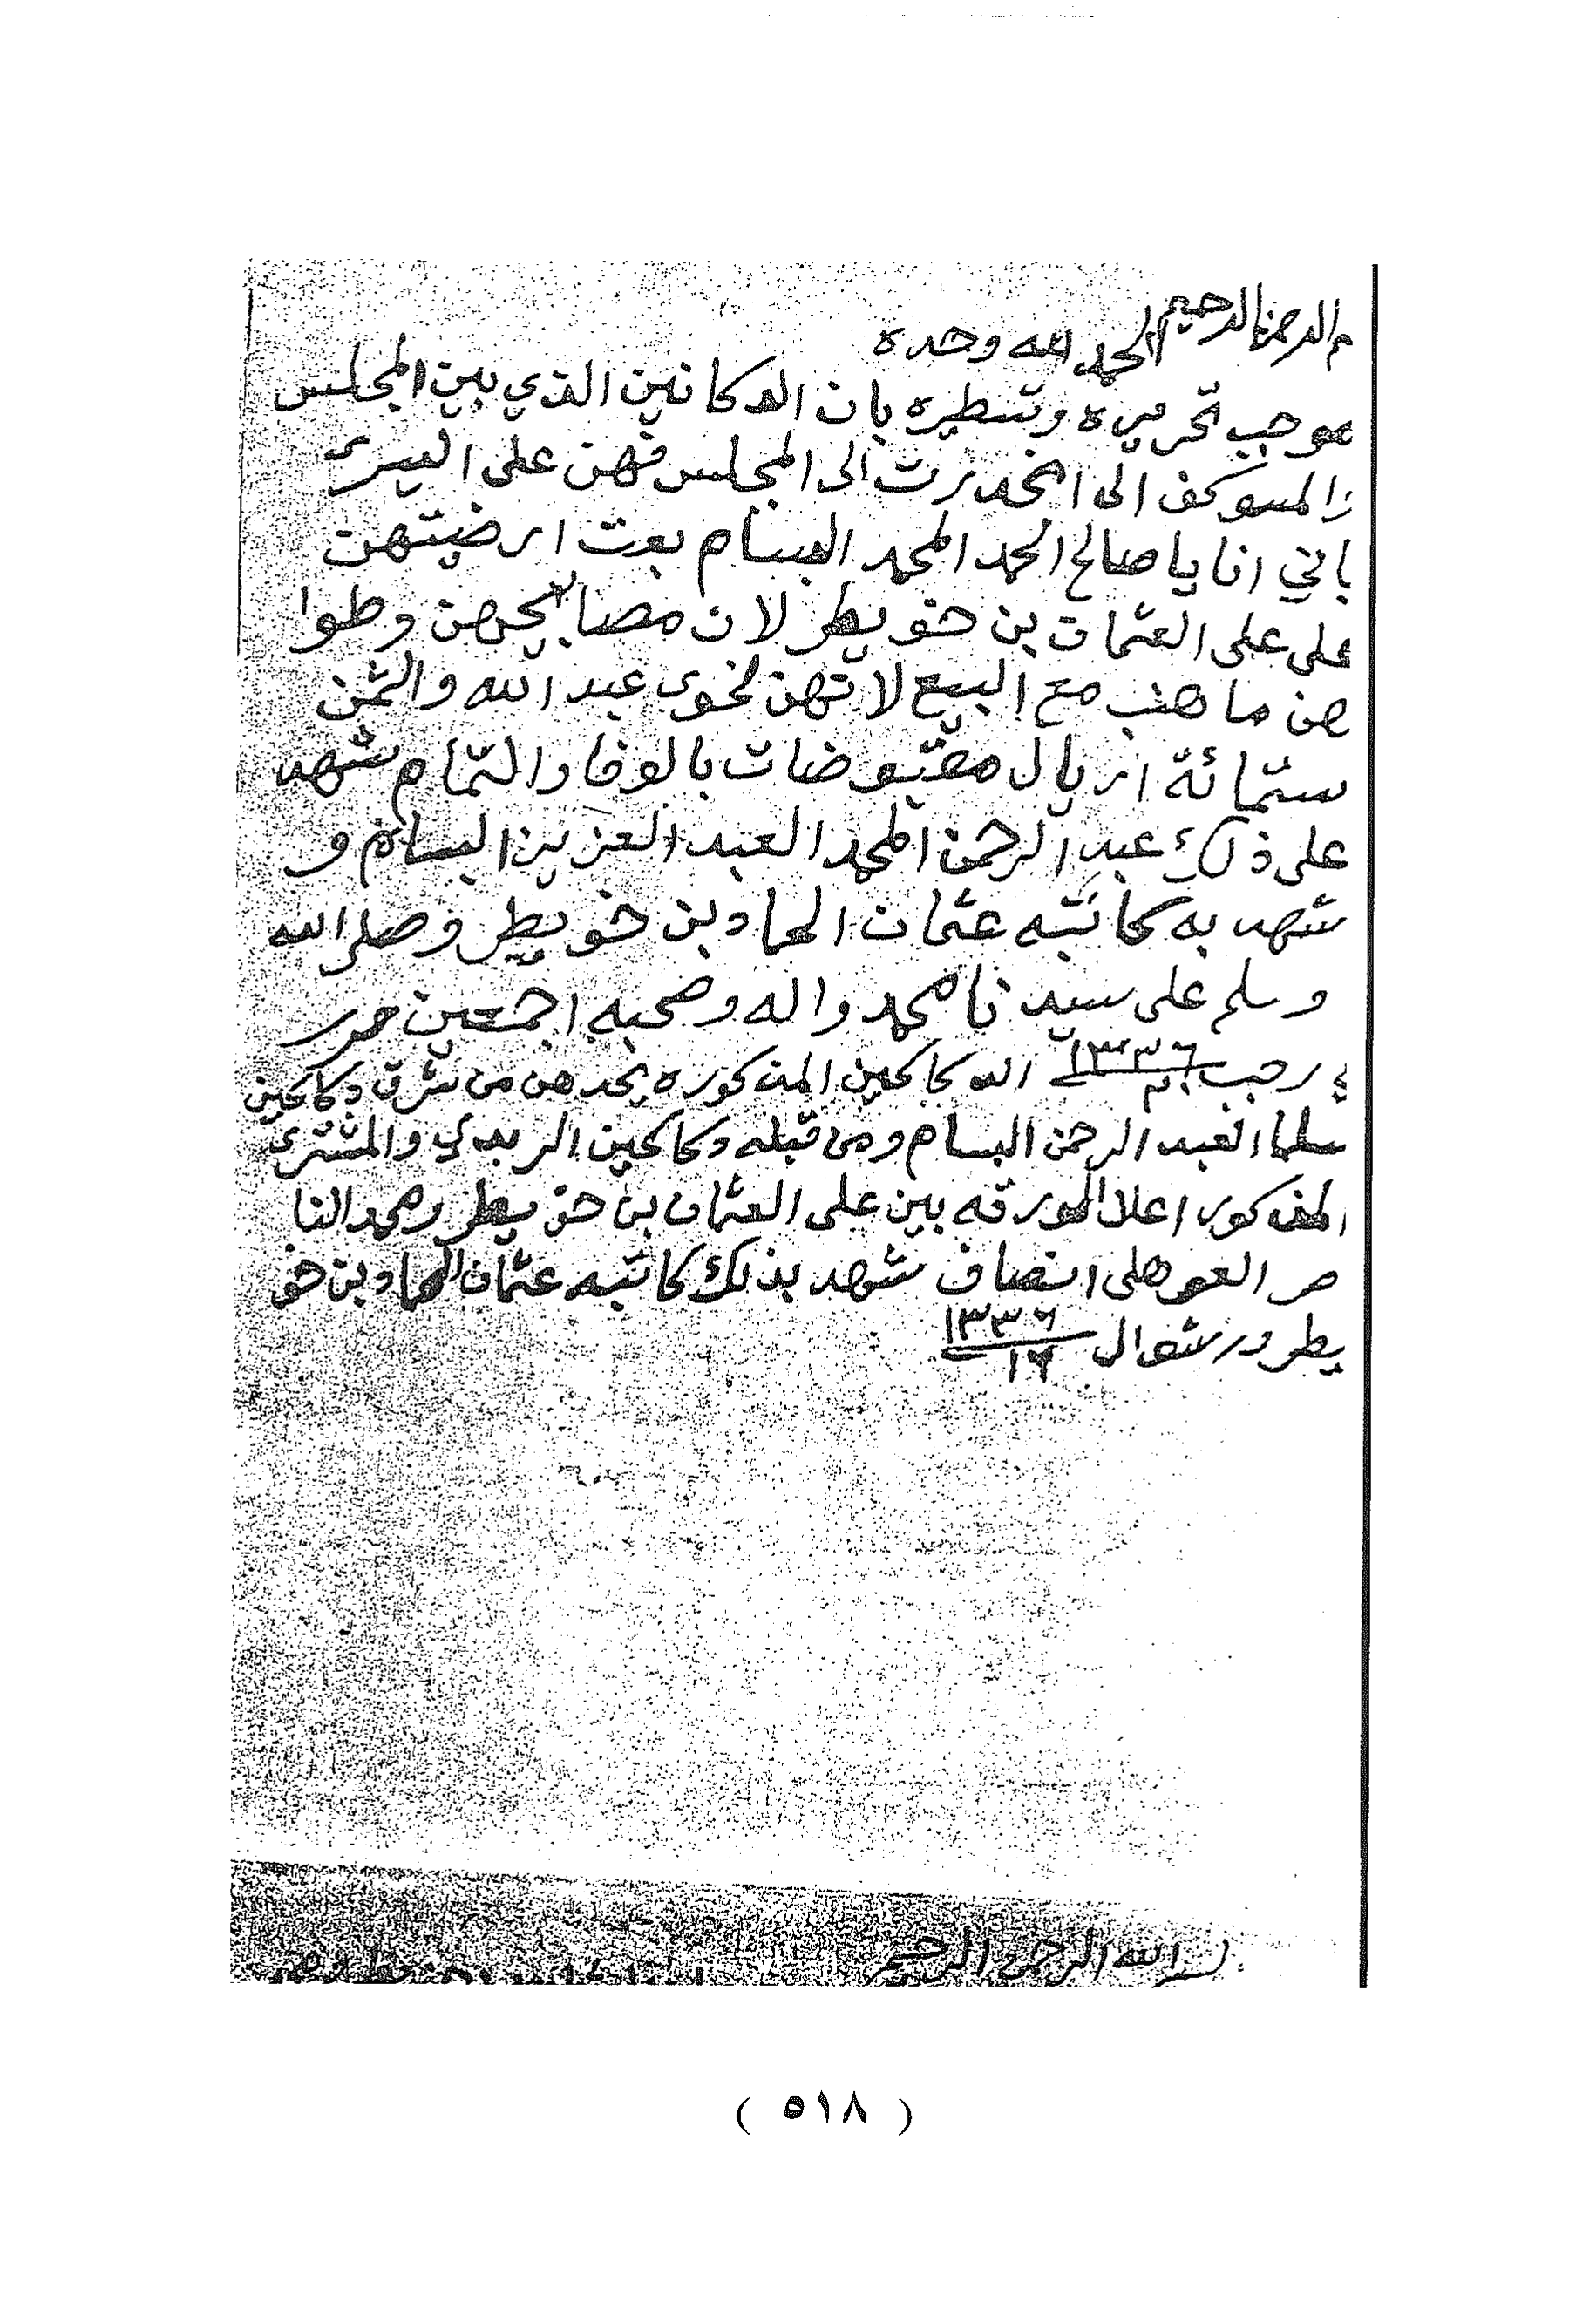 م الرحمن الرحيم الحمد لله وحده
موجب تحريره وتسطيره بان الدكانين الذي بين المجلس
والمسوكف الى انحدرت الى المجلس فهن على اليسرى
باني انا يا صالح الحمد المحمد البسام بعت ارضيتهن
على على العثمان بن خويطر لان مصابيحهن وطوا
هن ما هنب مع البيع لانهن لخوي عبد الله والثمن
ستمائة اريال مقبوضات بالوفا والتمام شهد
على ذلك عبد الرحمن المحمد العبد العزيز البسام و
شهد به كاتبه عثمان الحماد بن خويطر وصلى الله
وسلم على سيدنا محمد واله وصحبه اجمعين حرر
رجب ١٣٣٦ الدكاكين المذكوره يحدهن من شرق دكاكين
سلما العبد الرحمن البسام ومن قبله دكاكين الربدي والمشترى
المذكور اعلا الورقه بين على العثمان بن خويطر ومحمد النا
صر العوهلى انصاف شهد بذلك كاتبه عثمان الحماد بن خو
يطر ودر شوال ١٣٣٦ ١٦
بسم الله الرحمن الرحيم
( ٥١٨ )